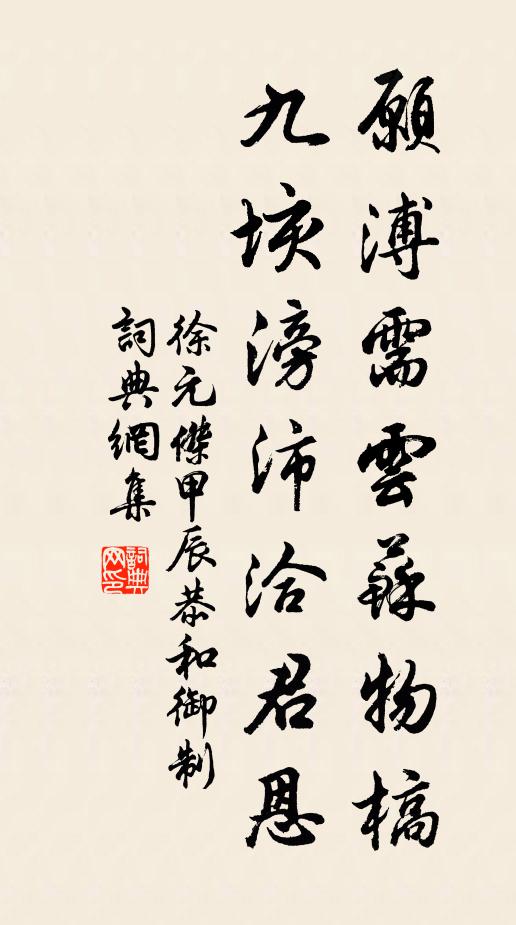 願溥需雲蘇物槁
九垓滂沛洽君恩
徐元傑甲辰恭和御制
詞典網集
詞典網印